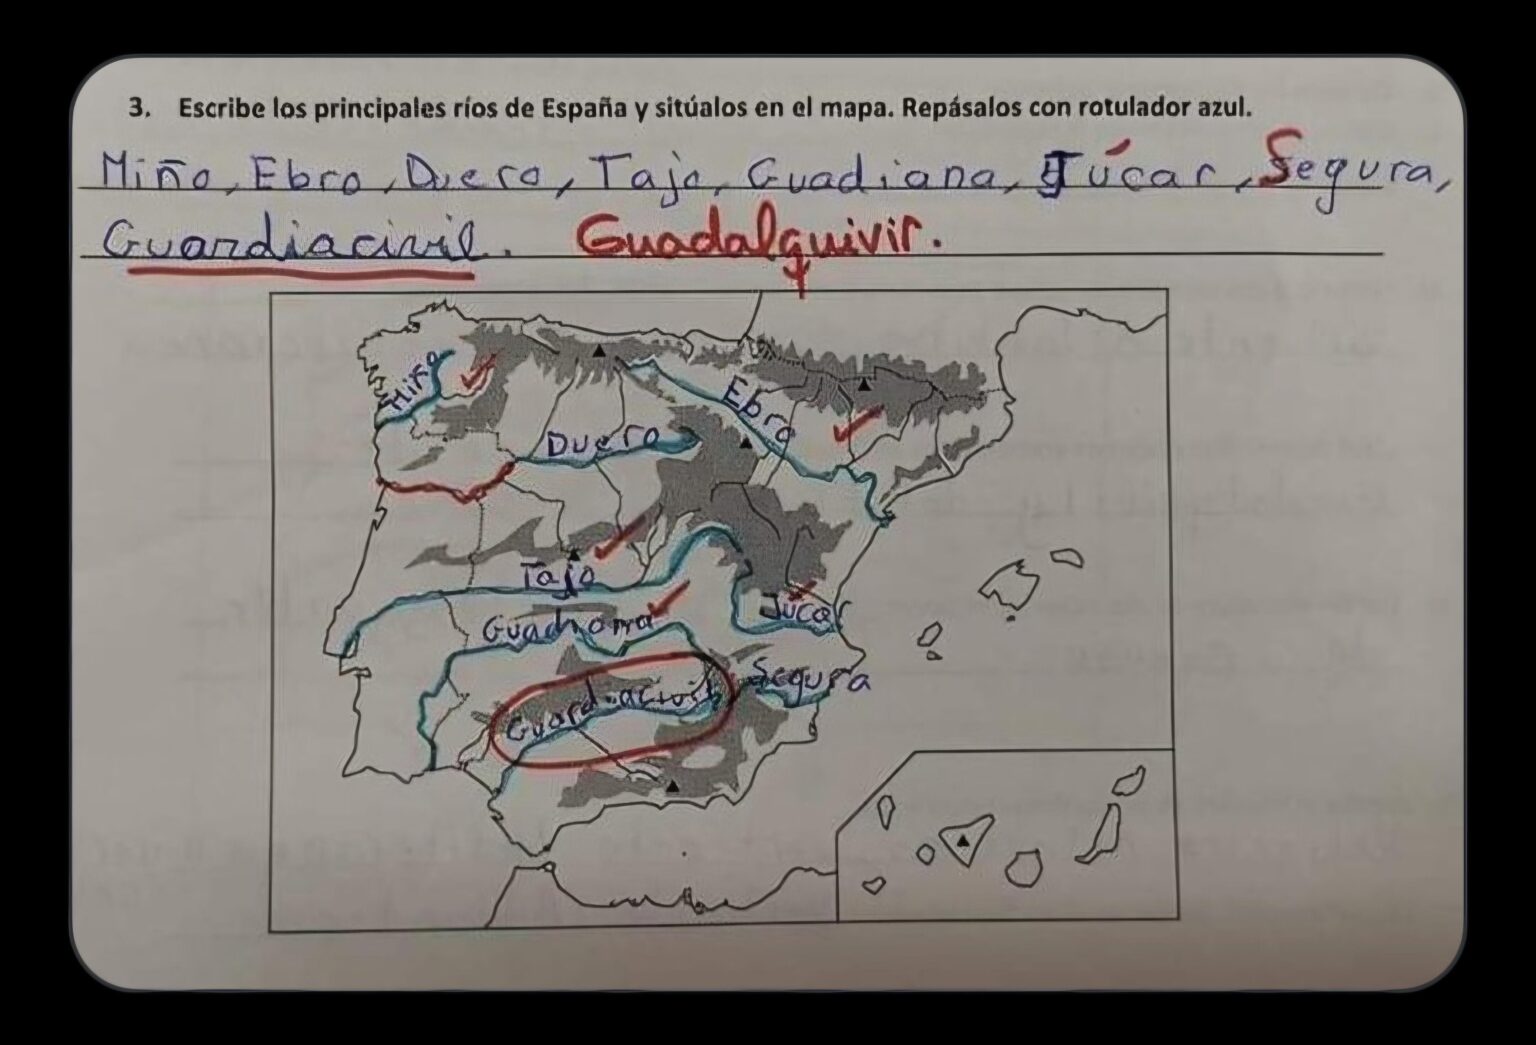 3. Escribe los principales ríos de España y sitúalos en el mapa. Repásalos con rotulador azul.
Miño, Ebro, Duero, Tajo, Guadiana, Júcar, Segura,
Guardiacivil. Guadalquivir.
Miño
Ebro
Duero
Tajo
Júcar
Guadiana
Segura
Guardiacivil